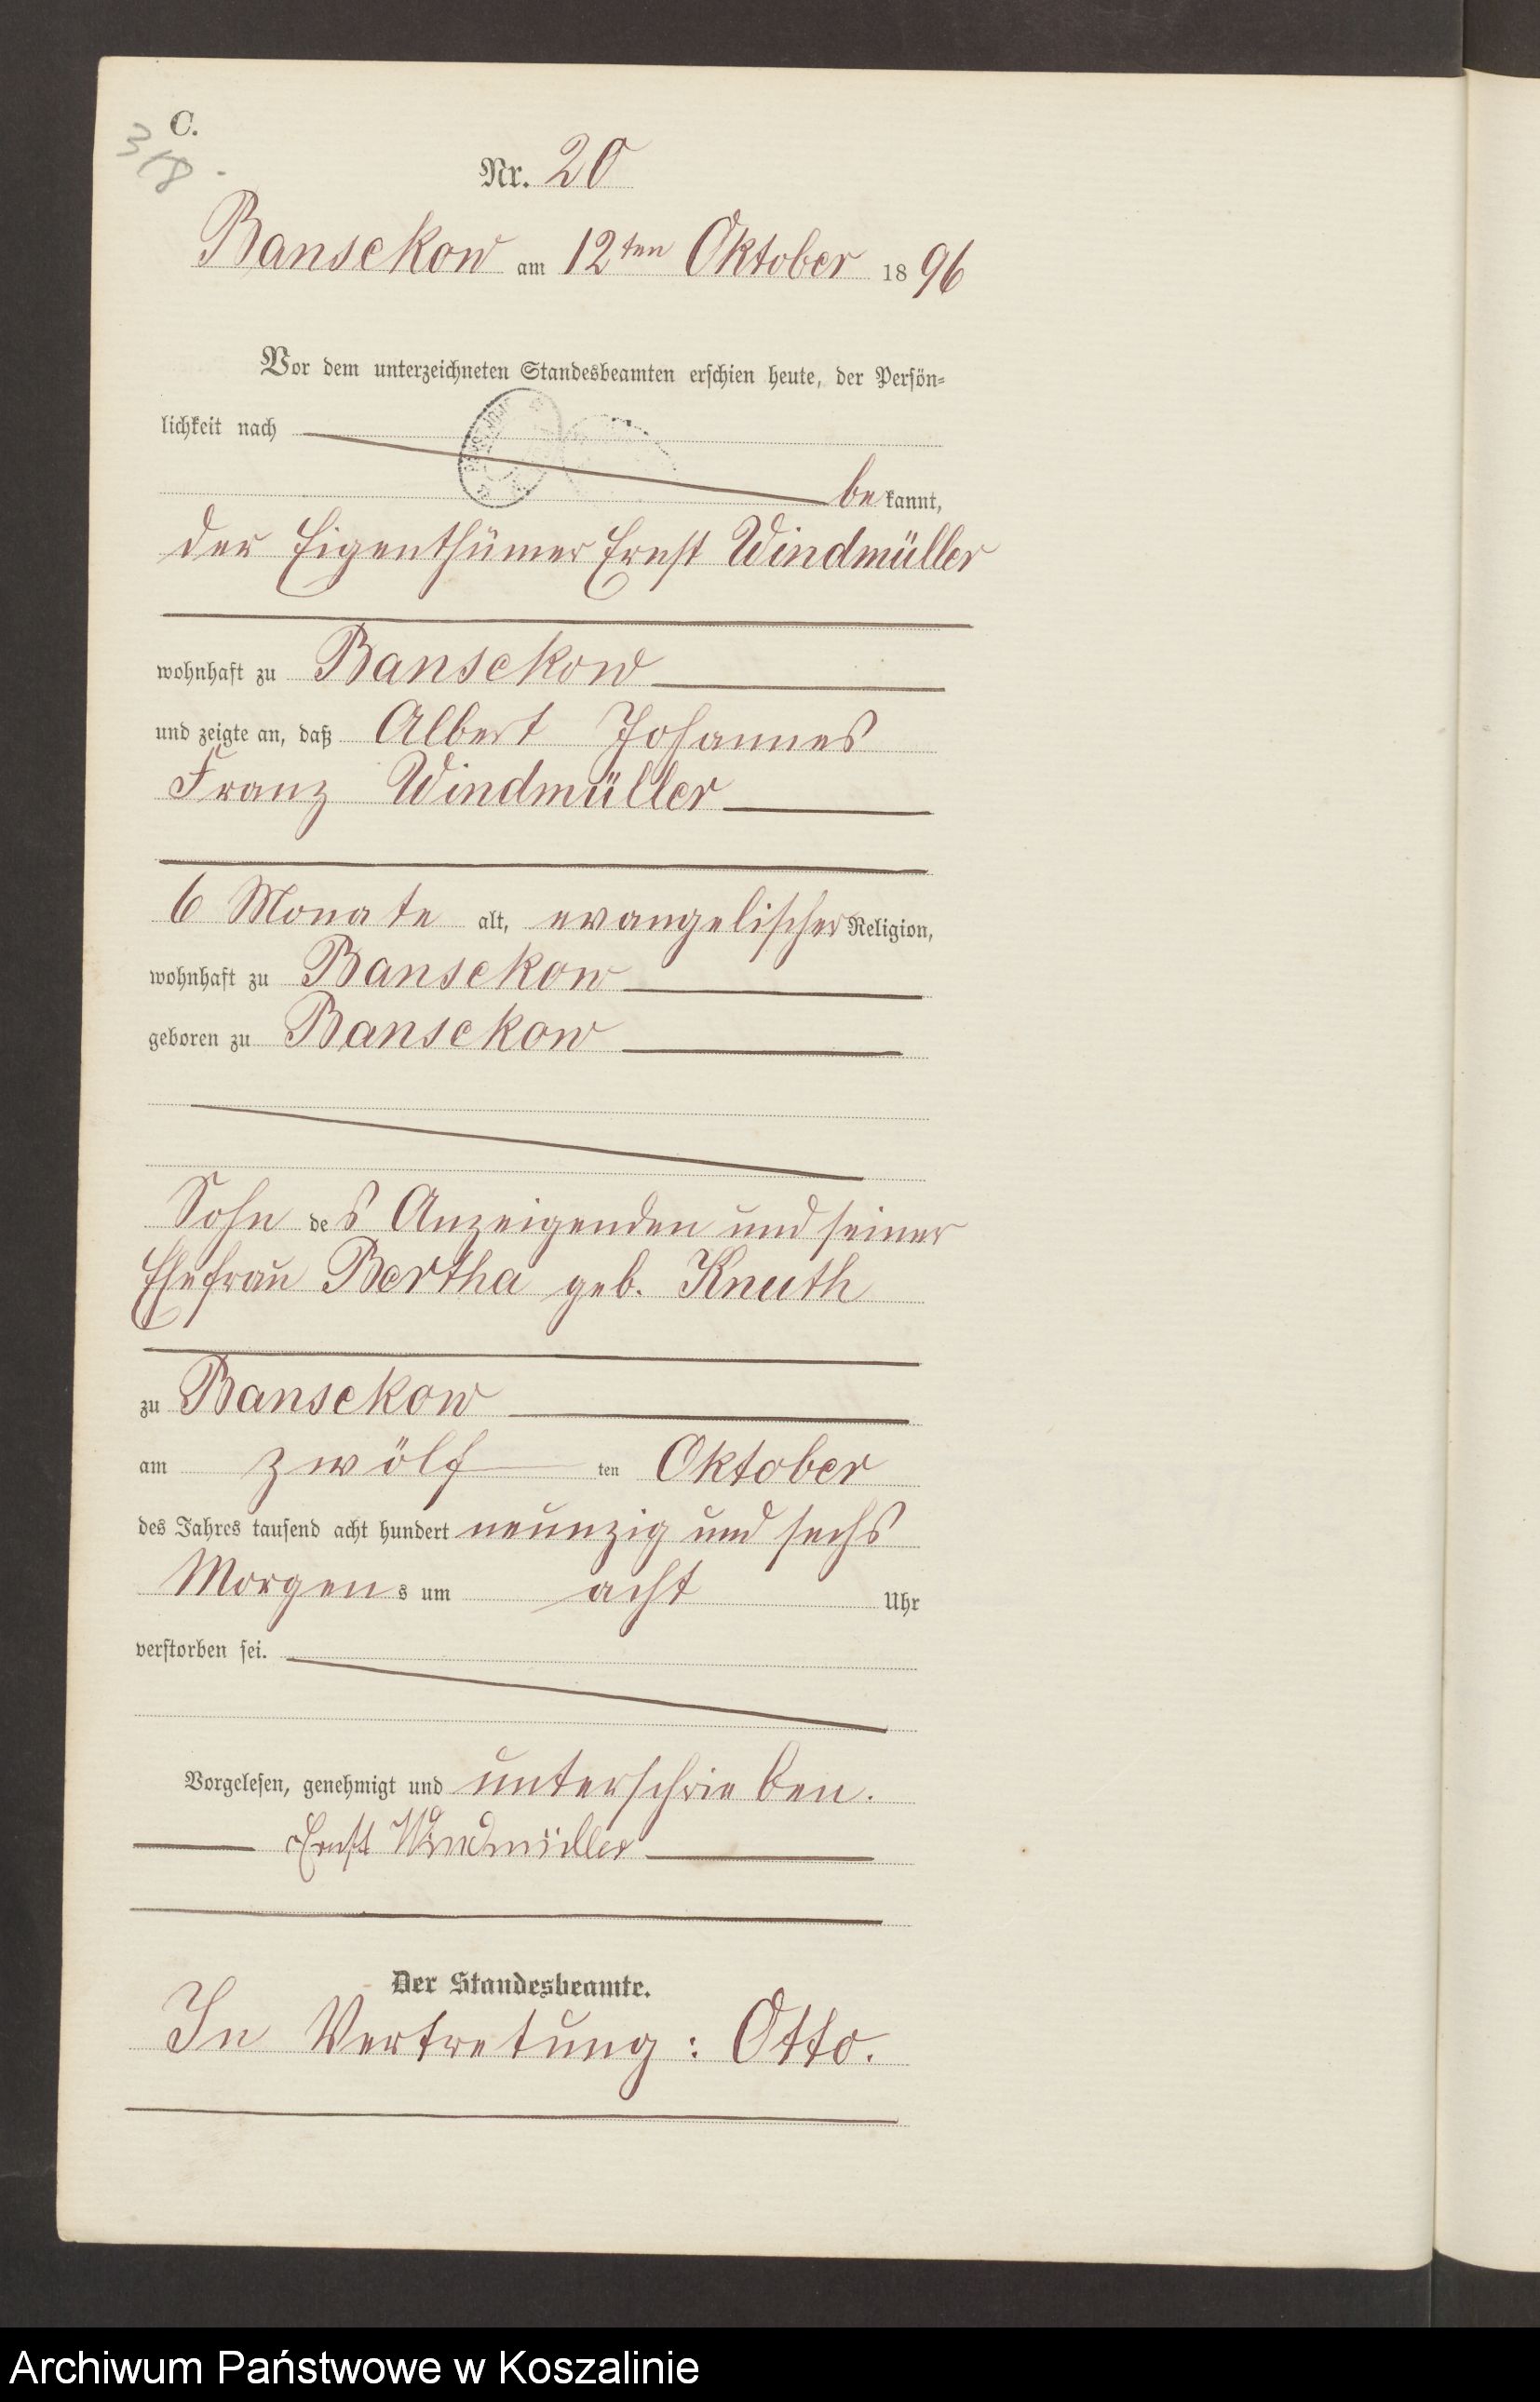 C.
318.
Nr. 20
Bansekow am 12ten Oktober 1896
Vor dem unterzeichneten Standesbeamten erschien heute, der Persön-
lichkeit nach
bekannt,
der Eigenthümer Ernst Windmüller
wohnhaft zu Bansekow
und zeigte an, daß Albert Johannes
Franz Windmüller
6 Monate alt, evangelischer Religion,
wohnhaft zu Bansekow
geboren zu Bansekow
Sohn des Anzeigenden und seiner
Ehefrau Bertha geb. Knuth
zu Bansekow
am zwölf ten Oktober
des Jahres tausend acht hundert neunzig und sechs
Morgens um acht Uhr
verstorben sei.
Vorgelesen, genehmigt und unterschrieben.
Ernst Windmüller
Der Standesbeamte.
In Vertretung: Otto.
Archiwum Państwowe w Koszalinie